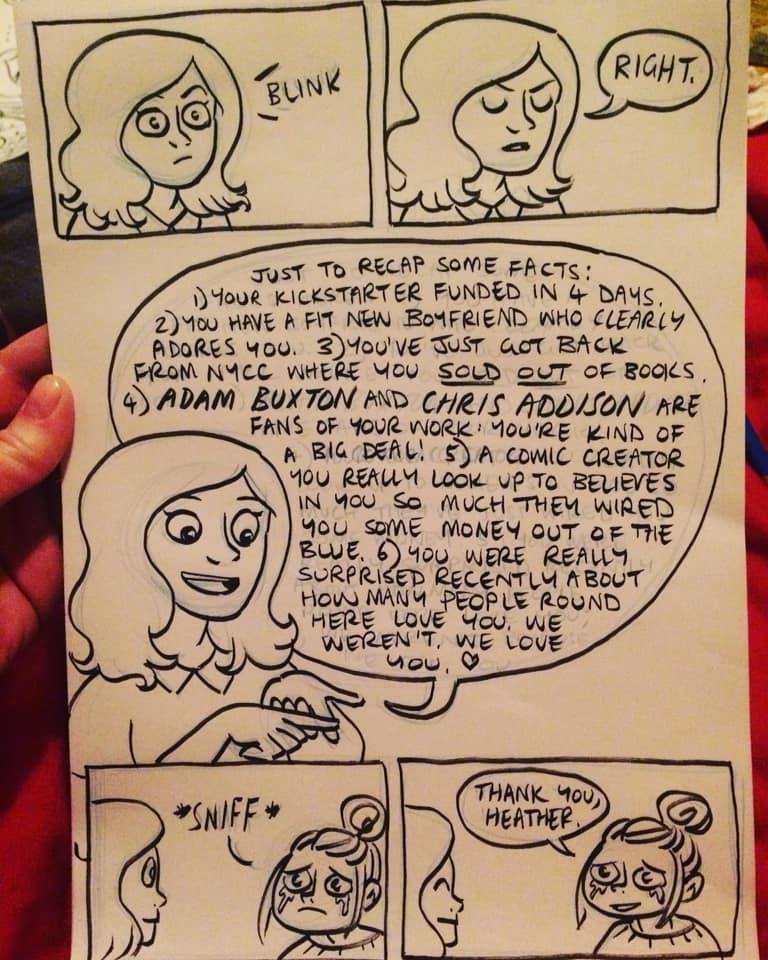 BLINK
RIGHT.
JUST TO RECAP SOME FACTS:
1) YOUR KICKSTARTER FUNDED IN 4 DAYS.
2) YOU HAVE A FIT NEW BOYFRIEND WHO CLEARLY
ADORES YOU. 3) YOU'VE JUST GOT BACK
FROM NYCC WHERE YOU SOLD OUT OF BOOKS.
4) ADAM BUXTON AND CHRIS ADDISON ARE
FANS OF YOUR WORK: YOU'RE KIND OF
A BIG DEAL! 5) A COMIC CREATOR
YOU REALLY LOOK UP TO BELIEVES
IN YOU SO MUCH THEY WIRED
YOU SOME MONEY OUT OF THE
BLUE. 6) YOU WERE REALLY
SURPRISED RECENTLY ABOUT
HOW MANY PEOPLE ROUND
HERE LOVE YOU. WE
WEREN'T. WE LOVE
YOU. ♡
*SNIFF*
THANK YOU,
HEATHER.